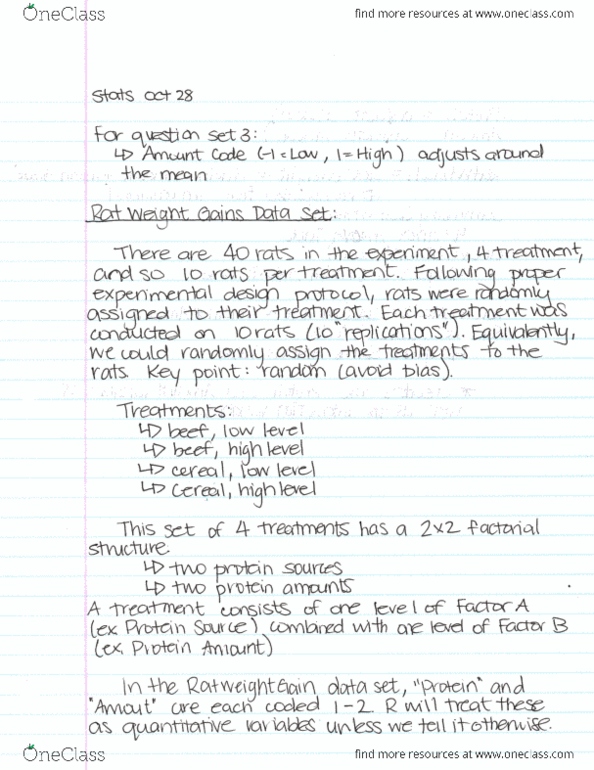 OneClass
find more resources at www.oneclass.com
Stats Oct 28
For question set 3:
↳ Amount Code (-1=Low, 1=High) adjusts around
the mean
Rat Weight Gains Data Set:
There are 40 rats in the experiment, 4 treatment,
and so 10 rats per treatment. Following proper
experimental design protocol, rats were randomly
assigned to their treatment. Each treatment was
conducted on 10 rats (10 "replications"). Equivalently,
we could randomly assign the treatments to the
rats. Key point: random (avoid bias).
Treatments:
↳ beef, low level
↳ beef, high level
↳ cereal, low level
↳ cereal, high level
This set of 4 treatments has a 2x2 factorial
structure.
↳ two protein sources
↳ two protein amounts
A treatment consists of one level of Factor A
(ex. Protein Source) combined with one level of Factor B
(ex. Protein Amount)
In the RatWeightGain data set, "Protein" and
"Amout" are each coded 1-2. R will treat these
as quantitative variables unless we tell it otherwise.
OneClass
find more resources at www.oneclass.com